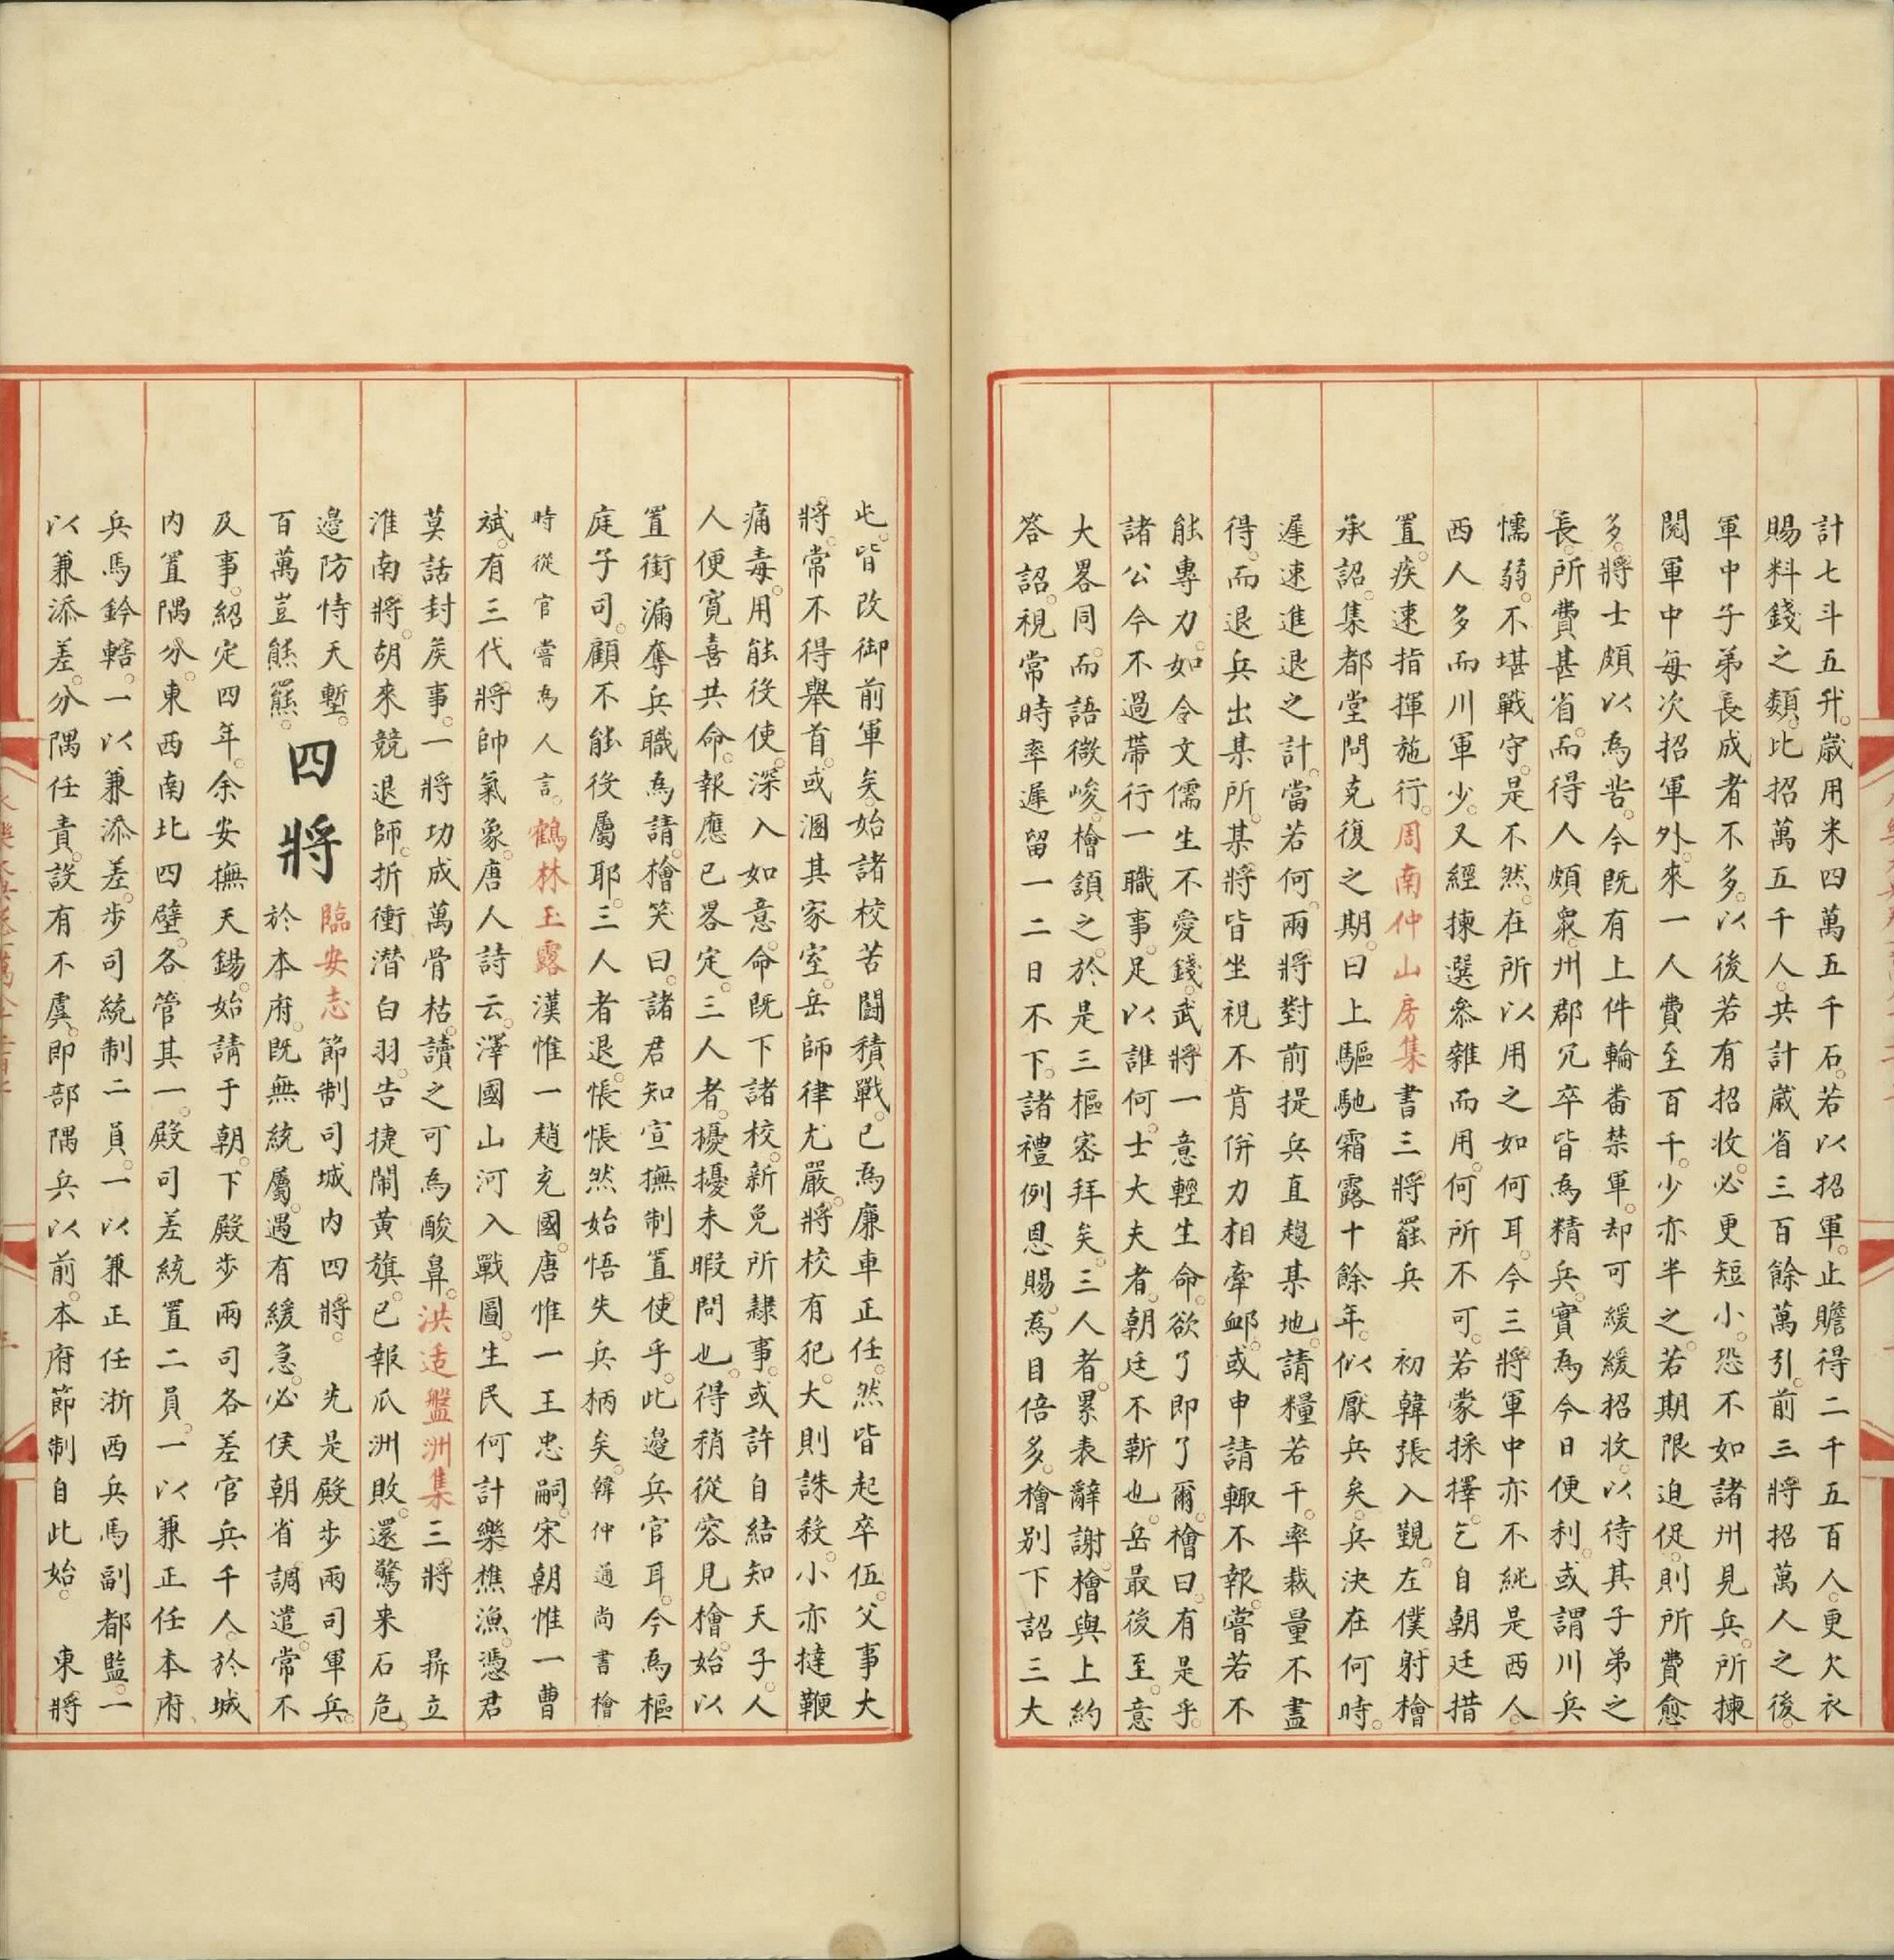 計七斗五升歲用米四萬五千石若以招軍止贍得二千五百人更欠衣
賜料錢之類比招萬五千人共計歲省三百餘萬引前三將招萬人之後
軍中子弟長成者不多以後若有招收必更短小恐不如諸州見兵所揀
閱軍中每次招軍外來一人費至百千少亦半之若期限迫促則所費愈
多將士頗以為苦今既有上件輪番禁軍却可緩緩招收以待其子弟之
長所費甚省而得人頗衆州郡冗卒皆為精兵實為今日便利或謂川兵
懦弱不堪戰守是不然在所以用之如何耳今三將軍中亦不純是西人
西人多而川軍少又經揀選叅雜而用何所不可若蒙採擇乞自朝廷措
置疾速指揮施行周南仲山房集書三將罷兵　初韓張入覲左僕射檜
承詔集都堂問克復之期曰上驅馳霜露十餘年似厭兵矣兵決在何時
遲速進退之計當若何兩將對前提兵直趨某地請糧若干率裁量不盡
得而退兵出某所某將皆坐視不肯併力相牽䘏或申請輙不報嘗若不
能專力如令文儒生不愛錢武將一意輕生命欲了即了爾檜曰有是乎
諸公今不過帶行一職事足以誰何士大夫者朝廷不靳也岳最後至意
大畧同而語微峻檜頷之於是三樞宻拜矣三人者累表辭謝檜與上約
答詔視常時率遲留一二日不下諸禮例恩賜為目倍多檜別下詔三大
屯皆改御前軍矣始諸校苦鬬積戰已為廉車正任然皆起卒伍父事大
將常不得舉首或溷其家室岳師律尤嚴將校有犯大則誅殺小亦撻鞭
痛毒用能役使深入如意命既下諸校新免所隷事或許自結知天子人
人便寬喜共命報應已畧定三人者擾擾未暇問也得稍從容見檜始以
置銜漏奪兵職為請檜笑曰諸君知宣撫制置使乎此邊兵官耳今為樞
庭子司顧不能役屬耶三人者退悵悵然始悟失兵柄矣韓仲通尚書檜
時從官嘗為人言鶴林玉露漢惟一趙充國唐惟一王忠嗣宋朝惟一曹
斌有三代將帥氣象唐人詩云澤國山河入戰圖生民何計樂樵漁憑君
莫話封矦事一將功成萬骨枯讀之可為酸鼻洪适盤洲集三將　鼎立
淮南將胡來競退師折衝潜白羽告捷鬧黃旗已報瓜洲敗還驚来石危
邉防恃天塹
百萬豈熊羆四將臨安志節制司城内四將　先是殿步兩司軍兵
於本府既無統屬遇有緩急必俟朝省調遣常不
及事紹定四年余安撫天錫始請于朝下殿步兩司各差官兵千人於城
内置隅分東西南北四壁各管其一殿司差統置二員一以兼正任本府
兵馬鈐轄一以兼添差步司統制二員一以兼正任浙西兵馬副都監一
以兼添差分隅任責設有不虞即部隅兵以前本府節制自此始　東將